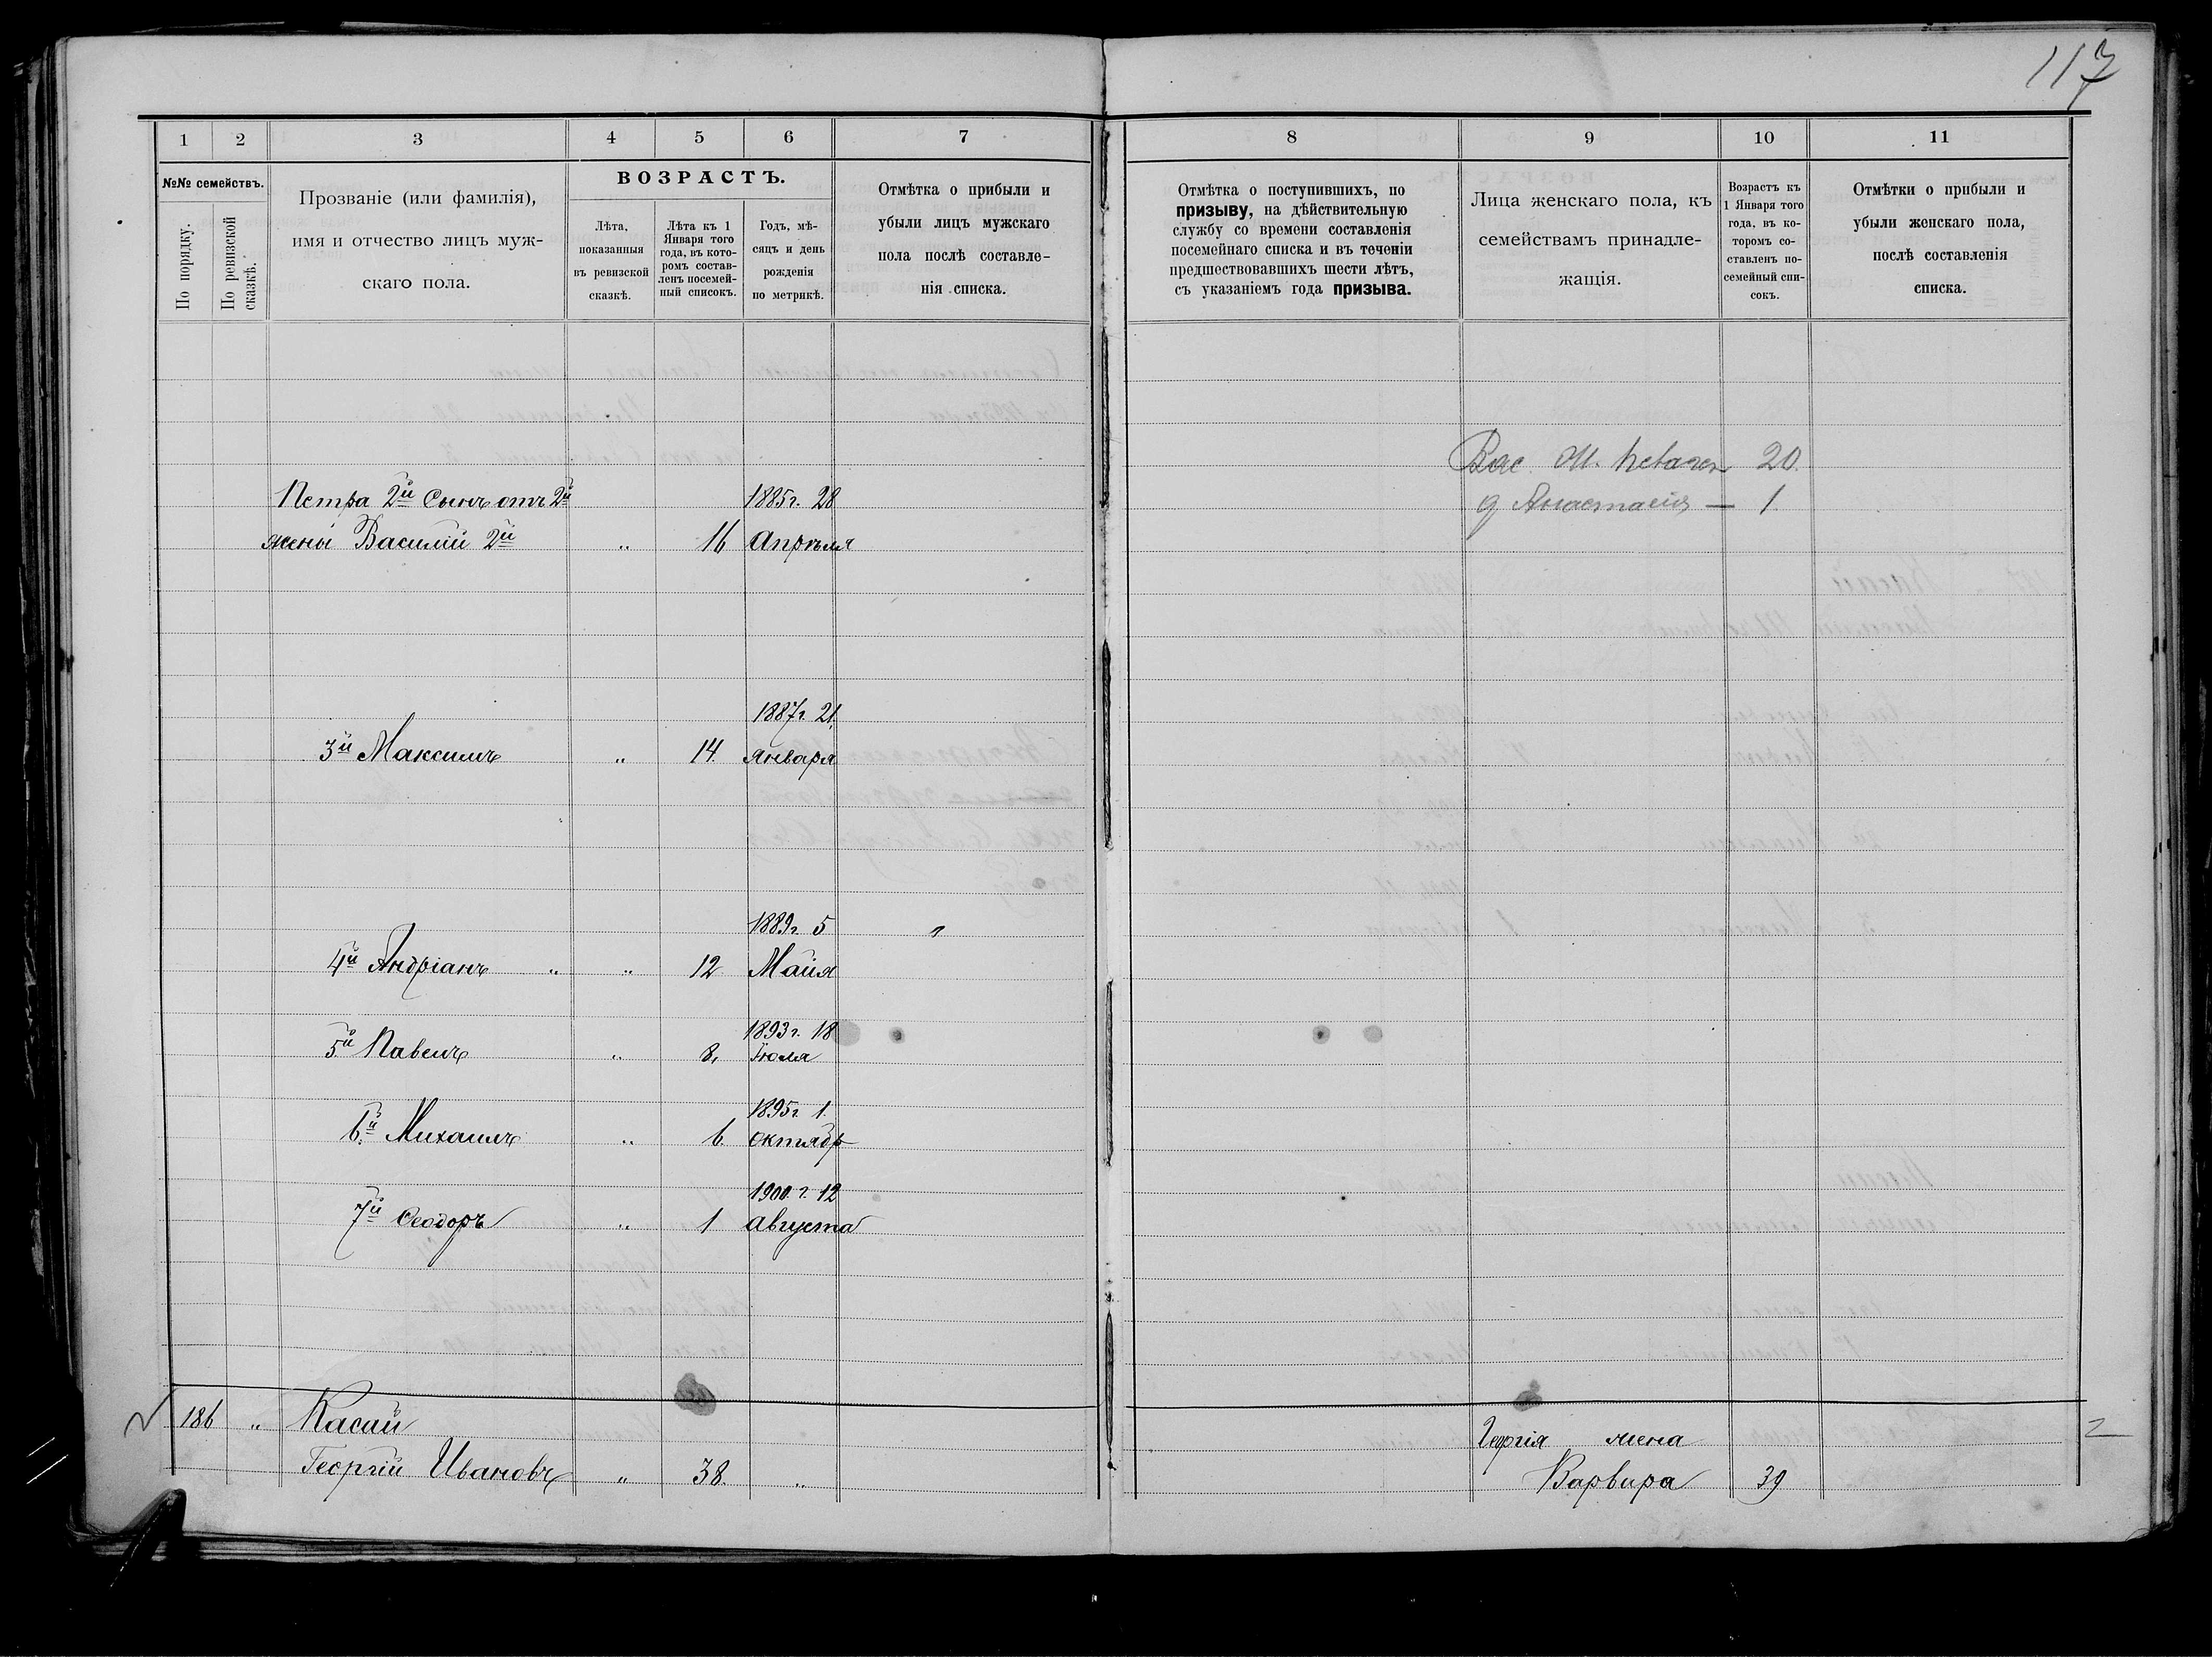 117
1 2 3 4 5 6 7 8 9 10 11
№№ семействъ.
По порядку.
По ревизской сказкѣ.
Прозваніе (или фамилія),
имя и отчество лицъ муж-
скаго пола.
ВОЗРАСТЪ.
Лѣта,
показанныя
въ ревизской
сказкѣ.
Лѣта къ 1
Января того
года, въ кото-
ромъ состав-
ленъ посемей-
ный списокъ.
Годъ, мѣ-
сяцъ и день
рожденія
по метрикѣ.
Отмѣтка о прибыли и
убыли лицъ мужскаго
пола послѣ составле-
нія списка.
Отмѣтка о поступившихъ, по
призыву, на дѣйствительную
службу со времени составленія
посемейнаго списка и въ теченіи
предшествовавшихъ шести лѣтъ,
съ указаніемъ года призыва.
Лица женскаго пола, къ
семействамъ принадле-
жащія.
Возрастъ къ
1 Января того
года, въ ко-
торомъ со-
ставленъ по-
семейный спи-
сокъ.
Отмѣтки о прибыли и
убыли женскаго пола,
послѣ составленія
списка.
Вас. 20.
Петра 2й Сынъ отъ 2й 1885 г. 28 д Анастасія — 1
жены Василій 2й „ 16 Апрѣля
1887 г. 21
3й Максимъ „ 14. Января
1889 г. 5
4й Андріанъ „ „ 12 Майя
1893 г. 18
5й Павелъ „ 8, Іюля
1895 г. 1.
6й Михаилъ „ 6. Октябр
1900 г. 12
7й Ѳеодоръ „ 1 Августа
186 „ Касай Георгія жена
Георгій Ивановъ „ 38. „ Варвара 39